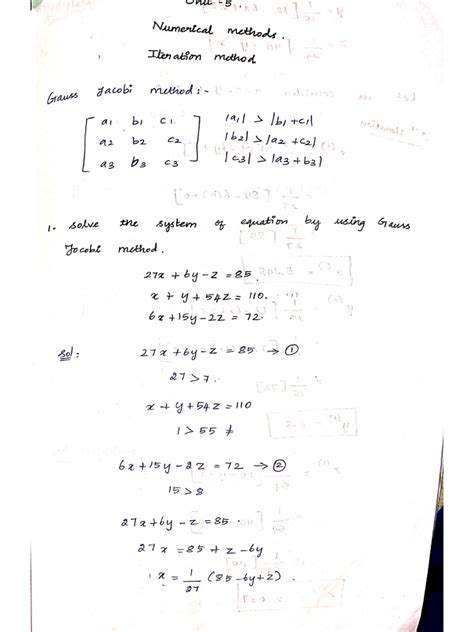 Unit -5.
Numerical methods.
Iteration method
Gauss Jacobi method :-
[ a1 b1 c1 ] |a1| > |b1 + c1|
[ a2 b2 c2 ] |b2| > |a2 + c2|
[ a3 b3 c3 ] |c3| > |a3 + b3|
1. solve the system of equation by using Gauss
Jocobi method.
27x + 6y - z = 85.
x + y + 54z = 110.
6x + 15y - 2z = 72.
sol: 27x + 6y - z = 85 → ①
27 > 7.
x + y + 54z = 110
1 > 55 ≠
6x + 15y - 2z = 72 → ②
15 > 8
27x + 6y - z = 85.
27x = 85 + z - 6y
x = 1/27 (85 - 6y + z).